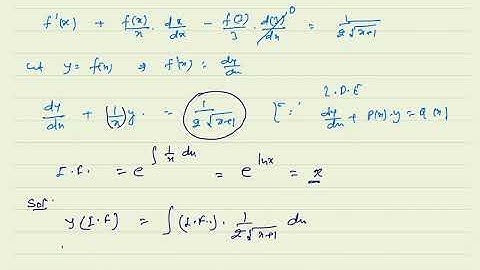 f'(x) + f(x)/x · dx/dx − f(3)/3 · d(3)/dx 0 = 1/2√x+1
let y = f(x) ⇒ f'(x) = dy/dx
dy/dx + (1/x)y = 1/2√x+1 [∵ L.D.E dy/dx + P(x)·y = Q(x)
I.F. = e^∫ 1/x dx = e^lnx = x
Sol:
y(I.F) = ∫(I.F.) · 1/2√x+1 dx